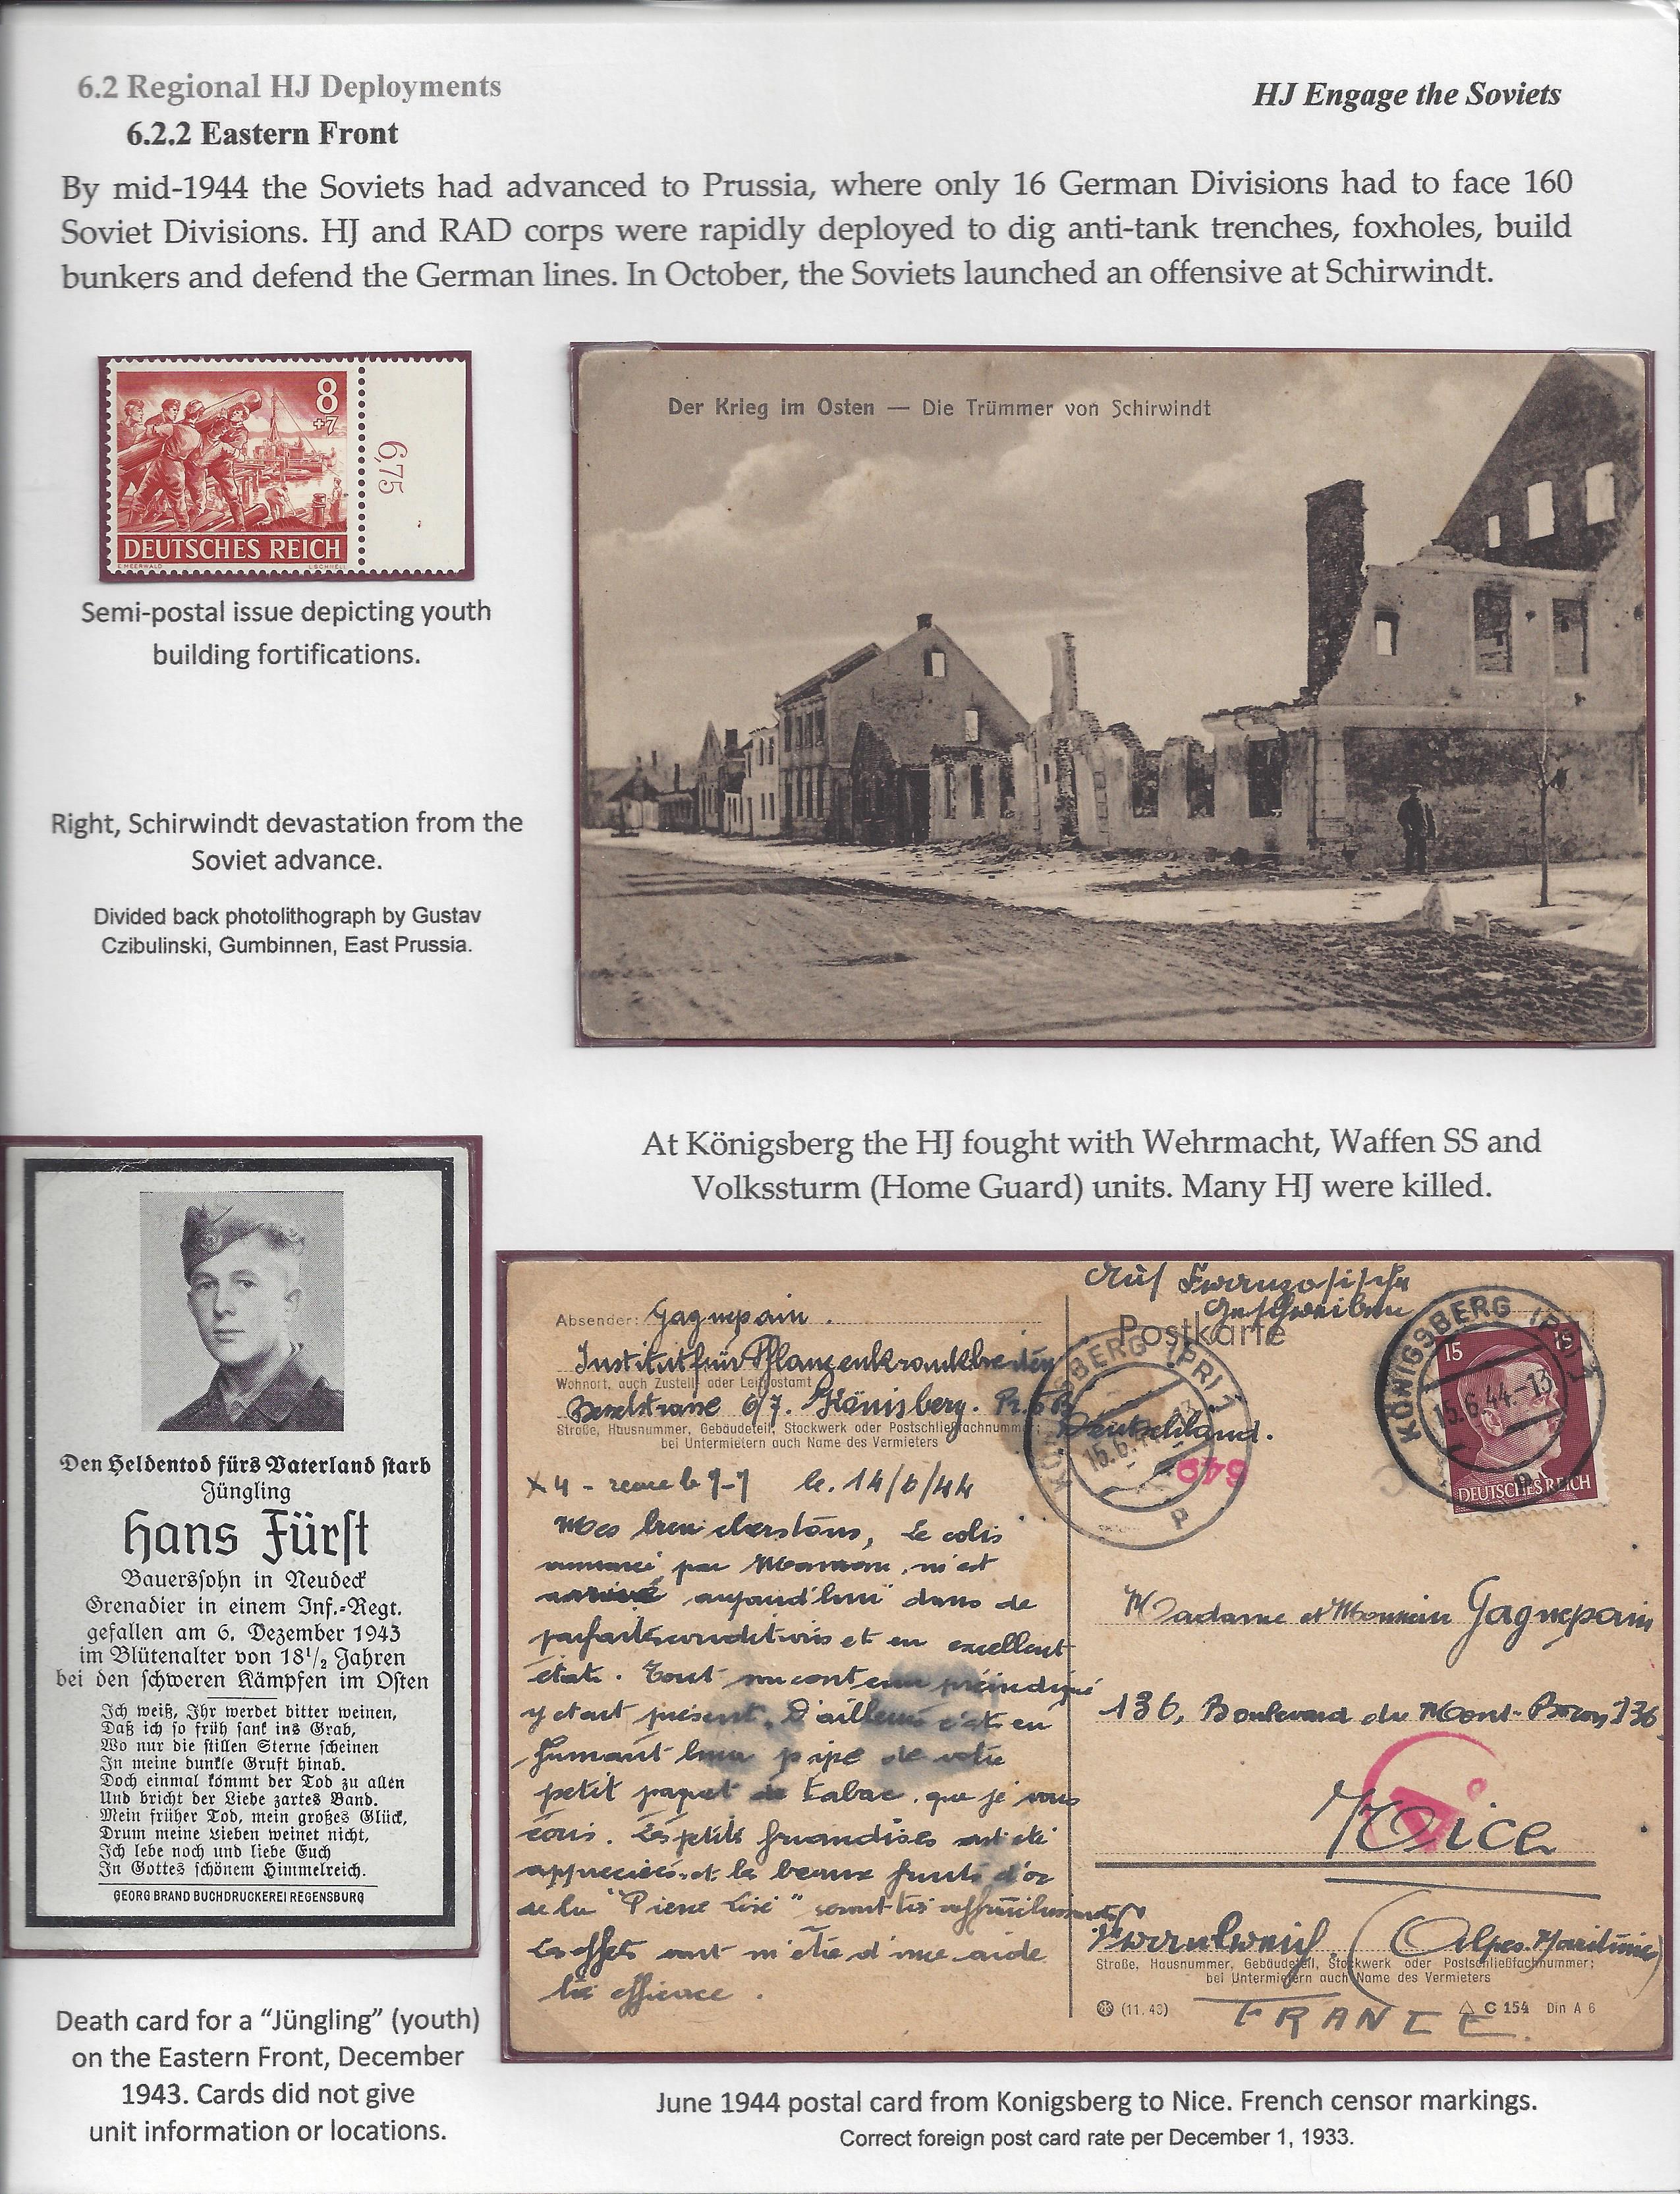 6.2 Regional HJ Deployments
HJ Engage the Soviets
6.2.2 Eastern Front
By mid-1944 the Soviets had advanced to Prussia, where only 16 German Divisions had to face 160
Soviet Divisions. HJ and RAD corps were rapidly deployed to dig anti-tank trenches, foxholes, build
bunkers and defend the German lines. In October, the Soviets launched an offensive at Schirwindt.
8
+7
6,75
DEUTSCHES REICH
E MEERWALD
L SCHNELL
Semi-postal issue depicting youth
building fortifications.
Der Krieg im Osten — Die Trümmer von Schirwindt
Right, Schirwindt devastation from the
Soviet advance.
Divided back photolithograph by Gustav
Czibulinski, Gumbinnen, East Prussia.
At Königsberg the HJ fought with Wehrmacht, Waffen SS and
Volkssturm (Home Guard) units. Many HJ were killed.
Den Heldentod fürs Vaterland starb
Jüngling
Hans Fürst
Bauerssohn in Neudeck
Grenadier in einem Inf.-Regt.
gefallen am 6. Dezember 1943
im Blütenalter von 18 1/2 Jahren
bei den schweren Kämpfen im Osten
Ich weiß, Ihr werdet bitter weinen,
Daß ich so früh sank ins Grab,
Wo nur die stillen Sterne scheinen
In meine dunkle Gruft hinab.
Doch einmal kommt der Tod zu allen
Und bricht der Liebe zartes Band.
Mein früher Tod, mein großes Glück,
Drum meine Lieben weinet nicht,
Ich lebe noch und liebe Euch
In Gottes schönem Himmelreich.
GEORG BRAND BUCHDRUCKEREI REGENSBURG
Death card for a "Jüngling" (youth)
on the Eastern Front, December
1943. Cards did not give
unit information or locations.
Auf Französische
Geschreiben
Postkarte
Absender: Gagnepain.
Institut für Pflanzenkrankheiten
Wohnort, auch Zustell- oder Leitpostamt
6/7. Könisberg. Pr. 5B
Deutschland.
Straße, Hausnummer, Gebäudeteil, Stockwerk oder Postschließfachnummer;
bei Untermietern auch Name des Vermieters
KÖNIGSBERG (PR) 1
15.6.44.-13
KÖNIGSBERG (PR)
15.6.44.-13
15
15
DEUTSCHES REICH
649
le. 14/6/44
Mes bien chers tous, Le colis
annoncé par Maman, m'est
arrivé aujourd'hui dans de
parfaites conditions et en excellent
état. Tout son contenu préindiqué
y était présent. D'ailleurs c'est en
fumant une pipe de votre
petit paquet de tabac, que je vous
écris. Les petites friandises ont été
appréciées et les beaux fruits d'or
de la
Les effets vont m'être d'une aide
très efficace.
Madame et Monsieur Gagnepain
136, Boulevard du Mont-Boron 136
Nice
A
(Alpes-Maritimes)
Straße, Hausnummer, Gebäudeteil, Stockwerk oder Postschließfachnummer;
bei Untermietern auch Name des Vermieters
(11.43)
FRANCE.
C 154 Din A 6
June 1944 postal card from Konigsberg to Nice. French censor markings.
Correct foreign post card rate per December 1, 1933.